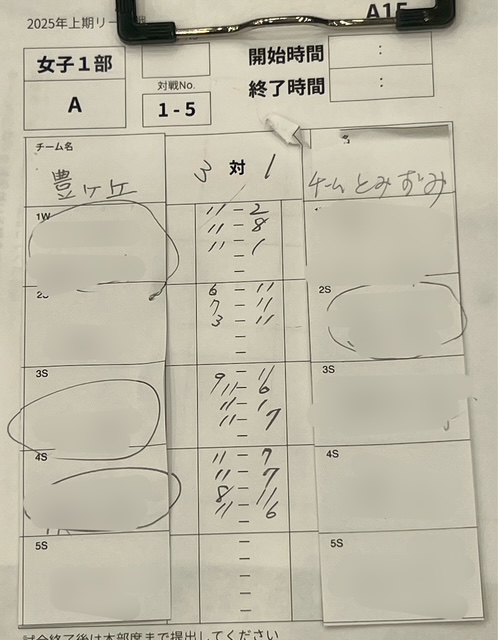 2025年上期リーグ戦
A15
女子1部
A
対戦No.
1-5
開始時間 :
終了時間 :
チーム名
豊ヶ丘
3 対 1
名
チームとみずみ
1W
11 - 2
11 - 8
11 - 1
-
-
2S
6 - 11
7 - 11
3 - 11
-
-
2S
3S
9 - 11
11 - 6
11 - 1
11 - 7
-
3S
4S
11 - 7
11 - 7
8 - 11
11 - 6
-
4S
5S
-
-
-
-
-
5S
試合終了後は本部席まで提出してください